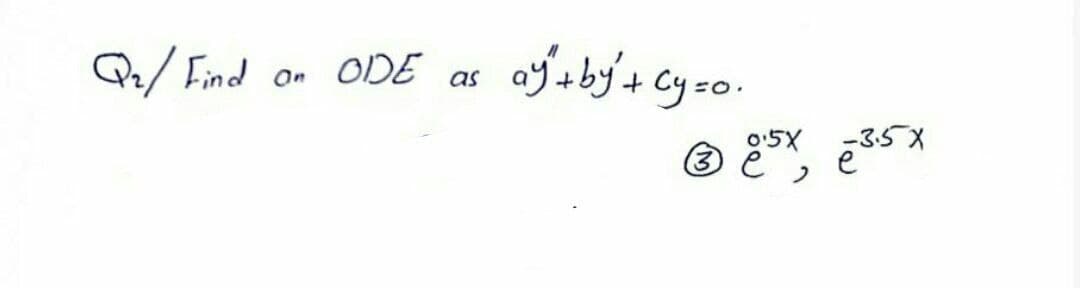 Q₂/ Find an ODE as ay″+by′+Cy=0.
③ e^0.5X, e^-3.5X